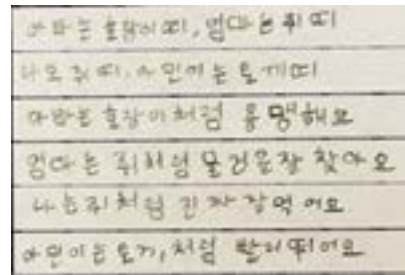 아빠는 호랑이띠, 엄마는 쥐띠
나도 쥐띠, 아인이는 토끼띠
아빠는 호랑이처럼 용맹해요
엄마는 쥐처럼 물건을 잘 찾아요
나는 쥐처럼 진짜 잘 먹어요
아인이는 토끼처럼 빨리 뛰어요